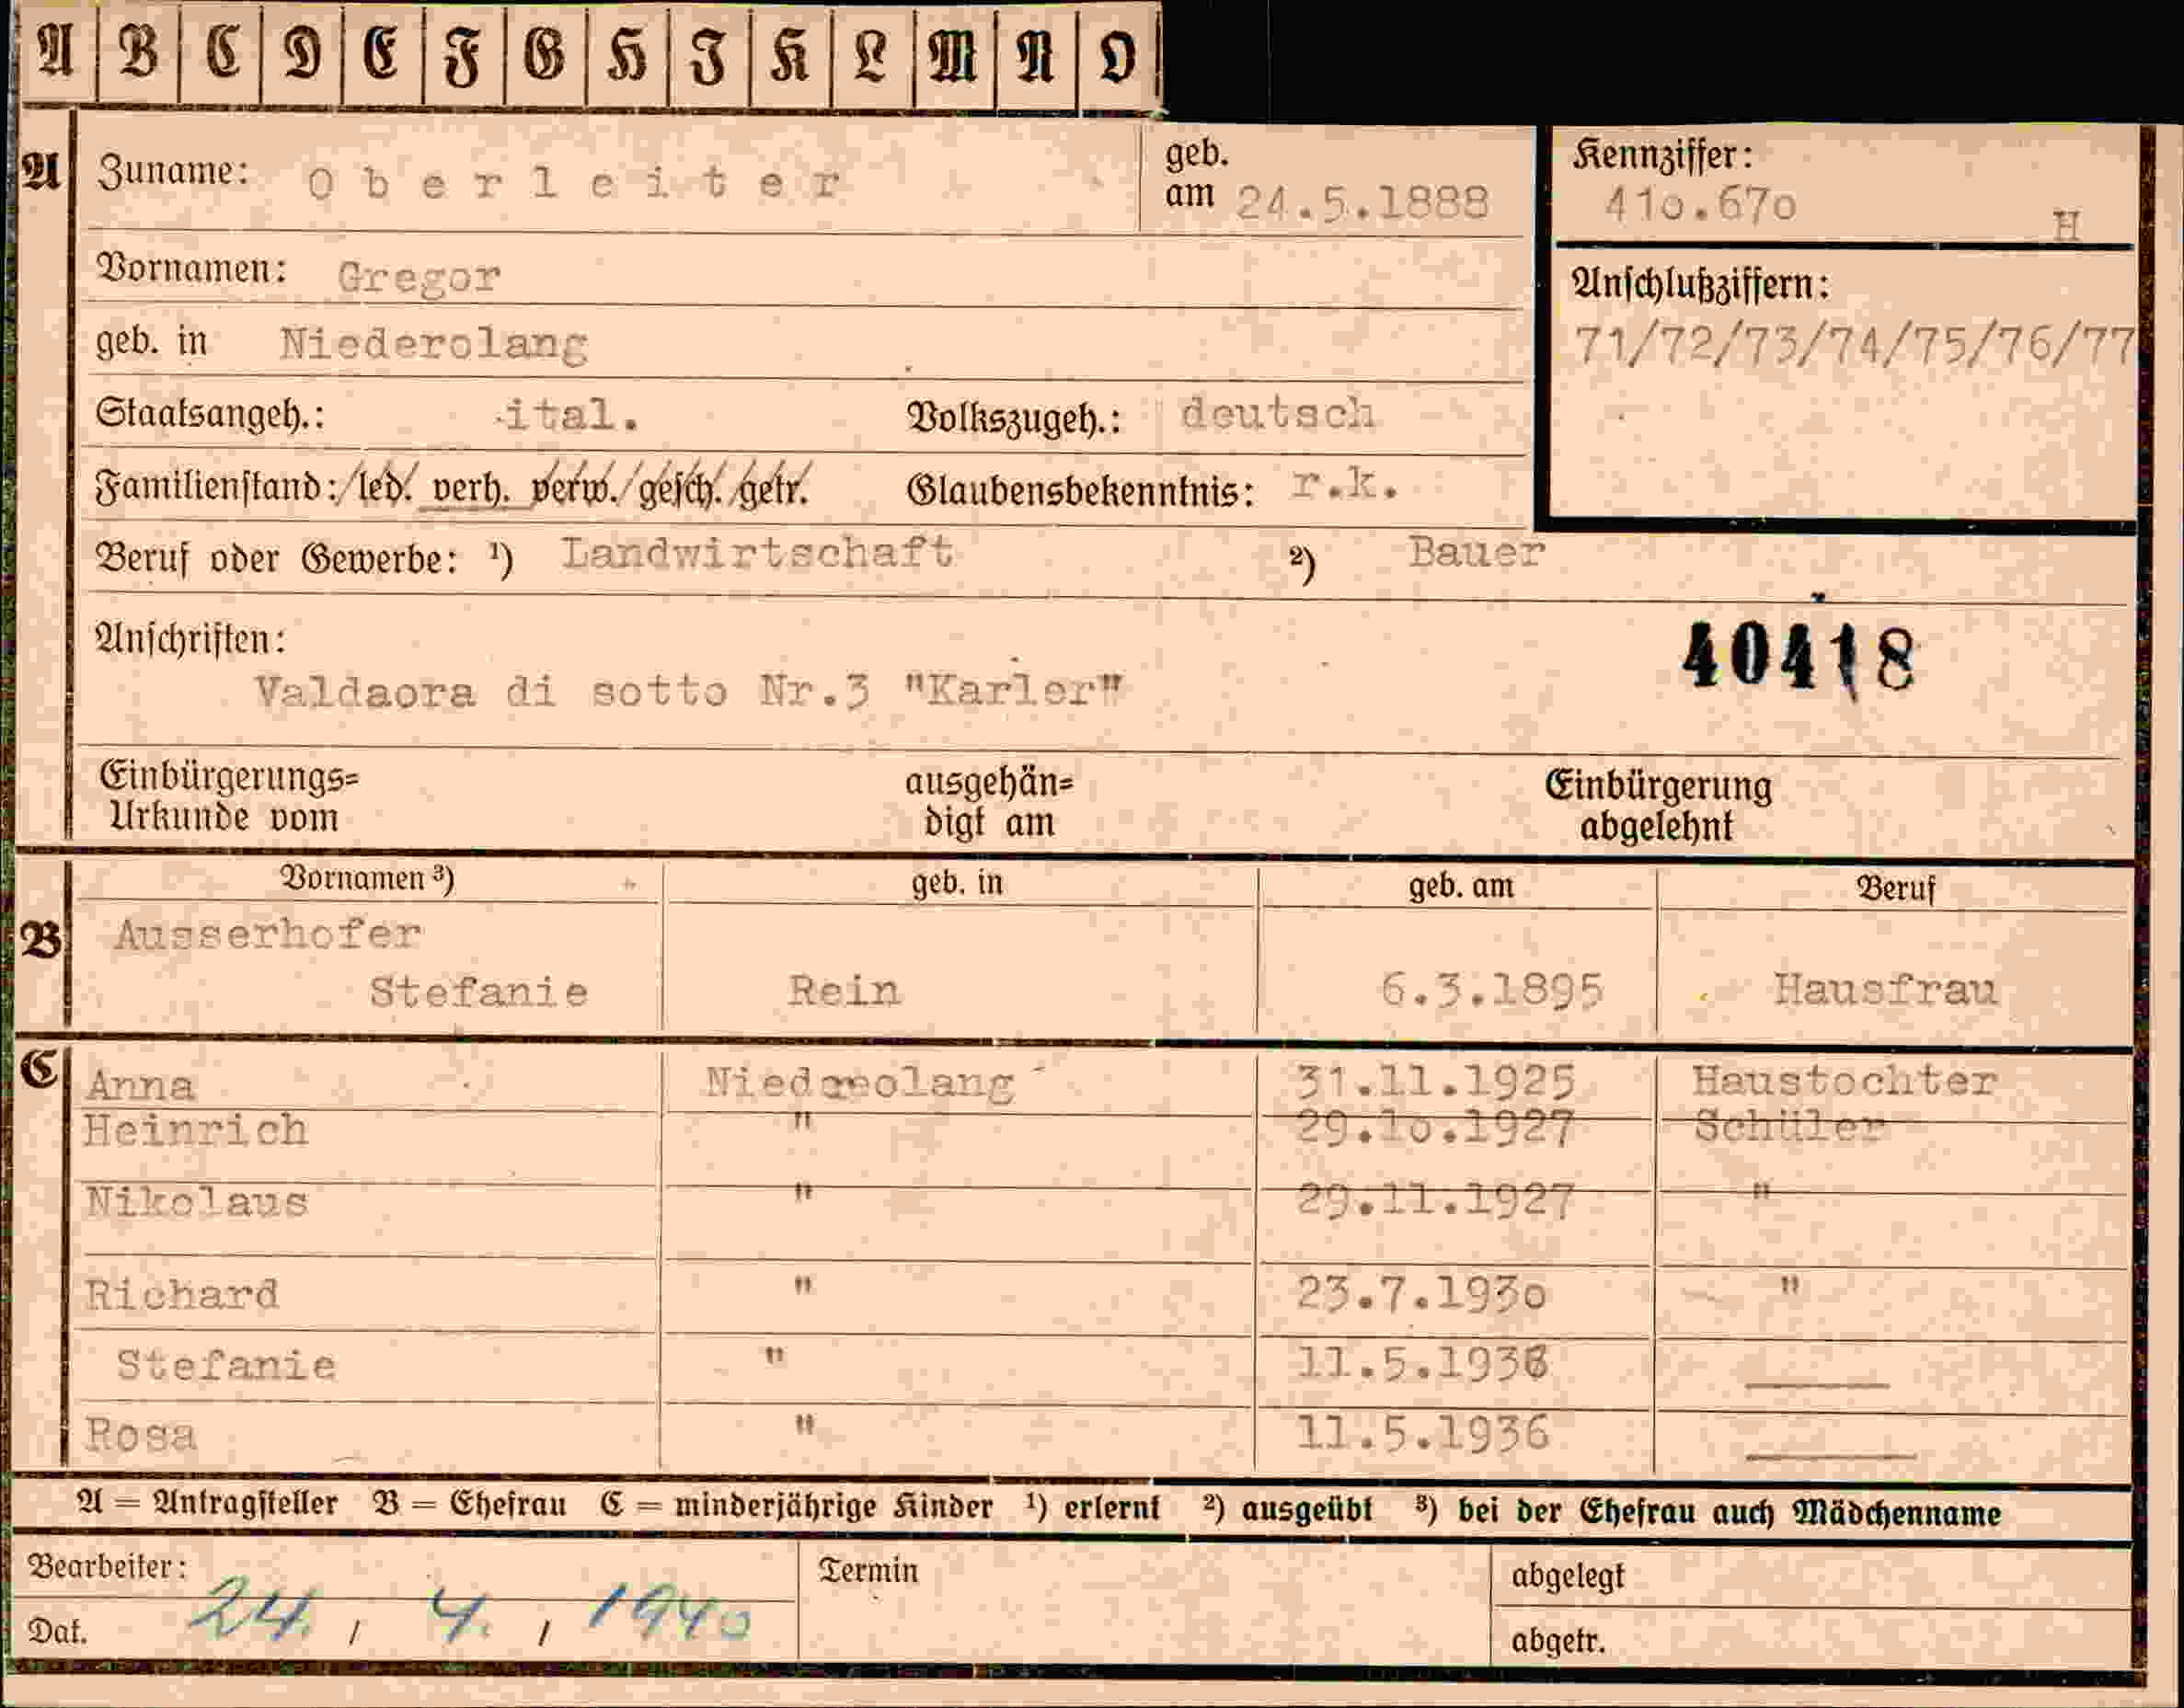 A B C D E F G H J K L M N O
A Zuname: Oberleiter geb. am 24.5.1888 Kennziffer: 41o.67o H
Vornamen: Gregor Anschlußziffern:
geb. in Niederolang 71/72/73/74/75/76/77
Staatsangeh.: ital. Volkszugeh.: deutsch
Familienstand: led. verh. verw. gesch. getr. Glaubensbekenntnis: r.k.
Beruf oder Gewerbe: ¹) Landwirtschaft ²) Bauer
Anschriften: 40418
Valdaora di sotto Nr.3 "Karler"
Einbürgerungs= ausgehän= Einbürgerung
Urkunde vom digt am abgelehnt
Vornamen ³) geb. in geb. am Beruf
B Ausserhofer
Stefanie Rein 6.3.1895 Hausfrau
C Anna 31.11.1925 Haustochter
Heinrich " 29.1o.1927 Schüler
Nikolaus " 29.11.1927 "
Richard " 23.7.193o "
Stefanie " 11.5.1936
Rosa " 11.5.1936
A = Antragsteller B = Ehefrau C = minderjährige Kinder ¹) erlernt ²) ausgeübt ³) bei der Ehefrau auch Mädchenname
Bearbeiter: Termin abgelegt
Dat. 24. / 4. / 1940 abgetr.